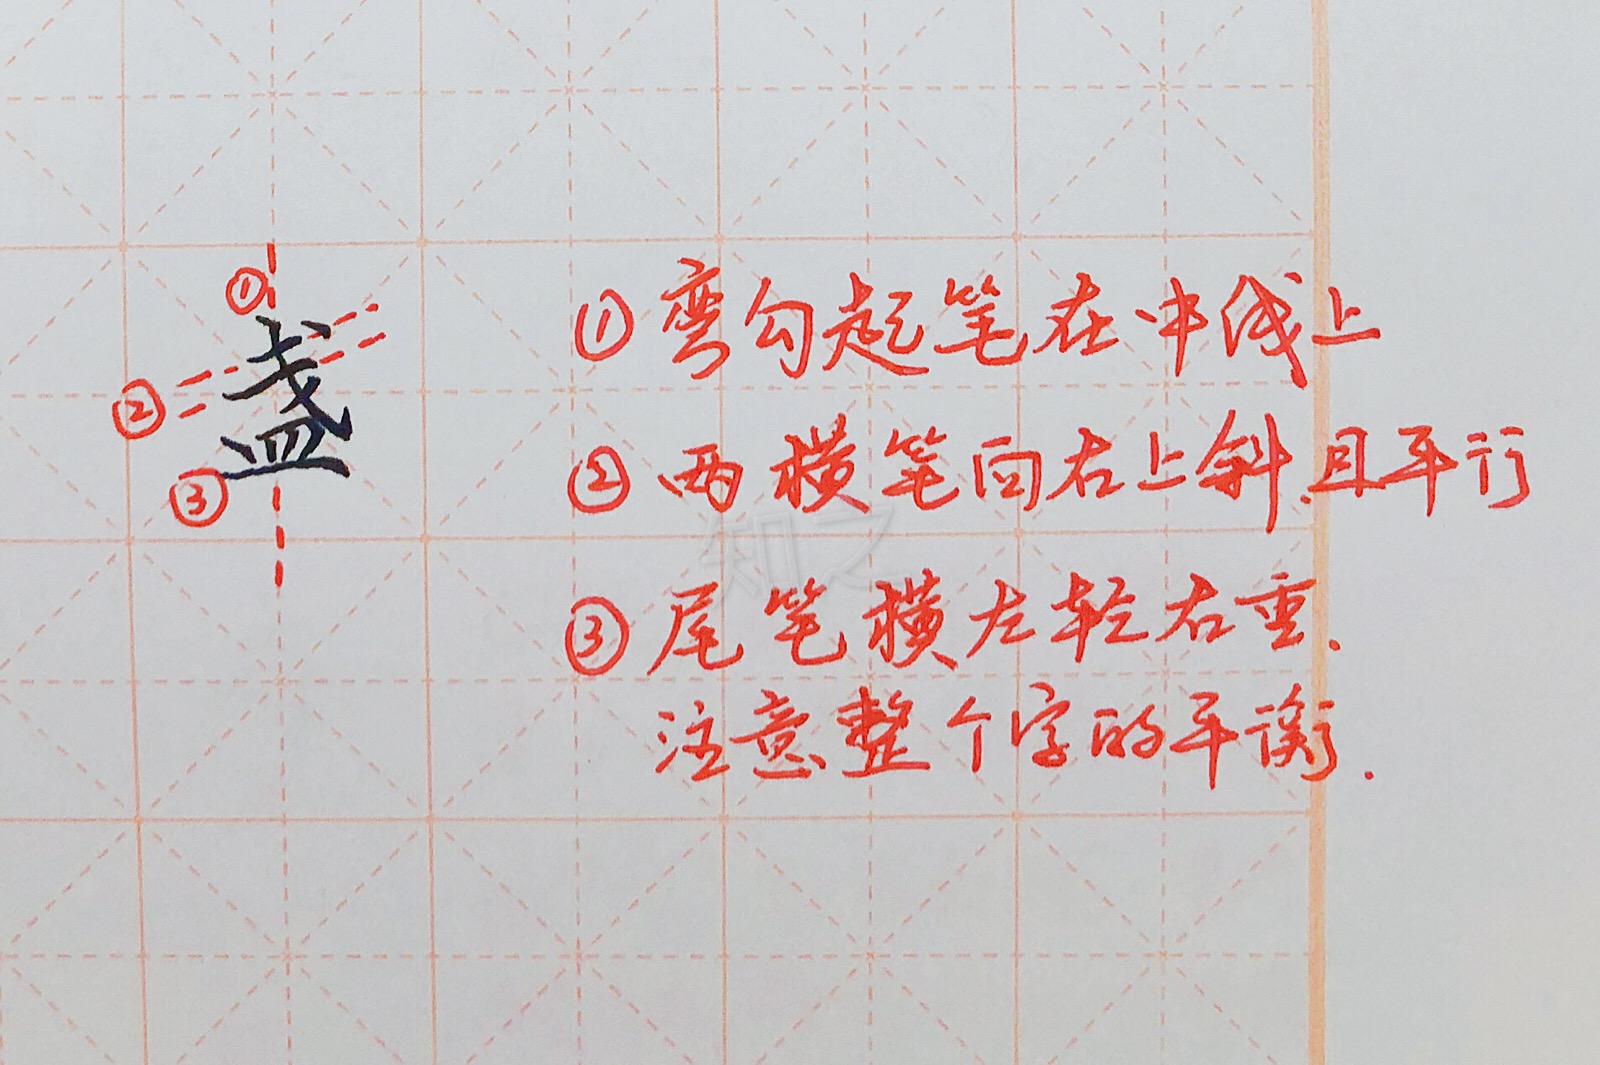 ①
盏
②
③
①弯勾起笔在中线上
②两横笔向右上斜.且平行
③尾笔横左轻右重.
注意整个字的平衡.
知之